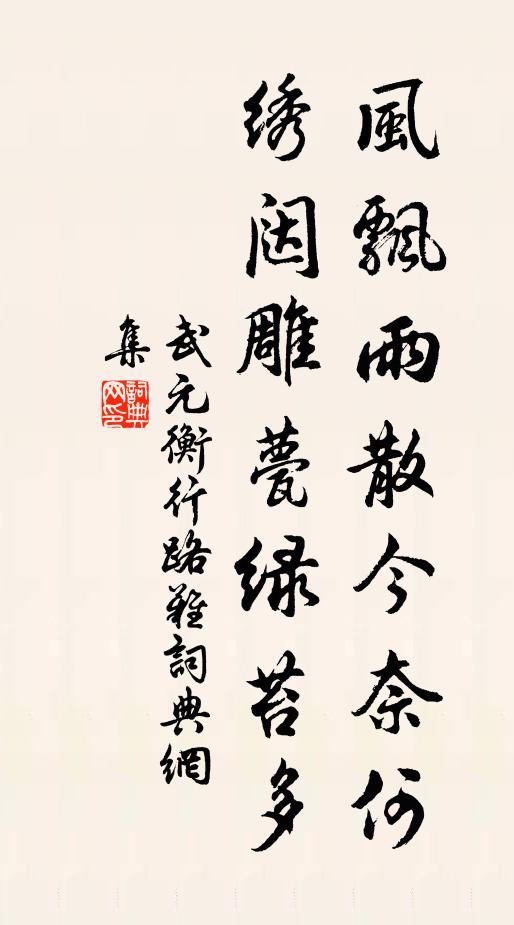 風飄雨散今奈何
绣闼雕甍绿苔多
武元衡行路難詞典網
集
詞典網印